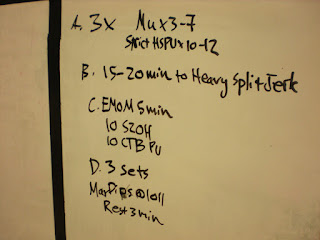 A. 3x Mux3-7
Strict HSPU x 10-12
B. 15-20min to Heavy Split Jerk
C. EMOM 5min
10 S2OH
10 CTB PU
D. 3 sets
Max Dips @ 1011
Rest 3min